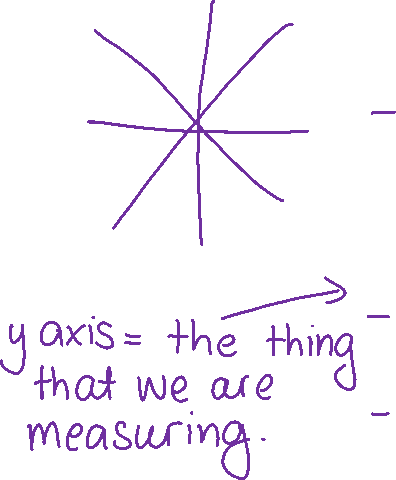 y axis = the thing
that we are
measuring.